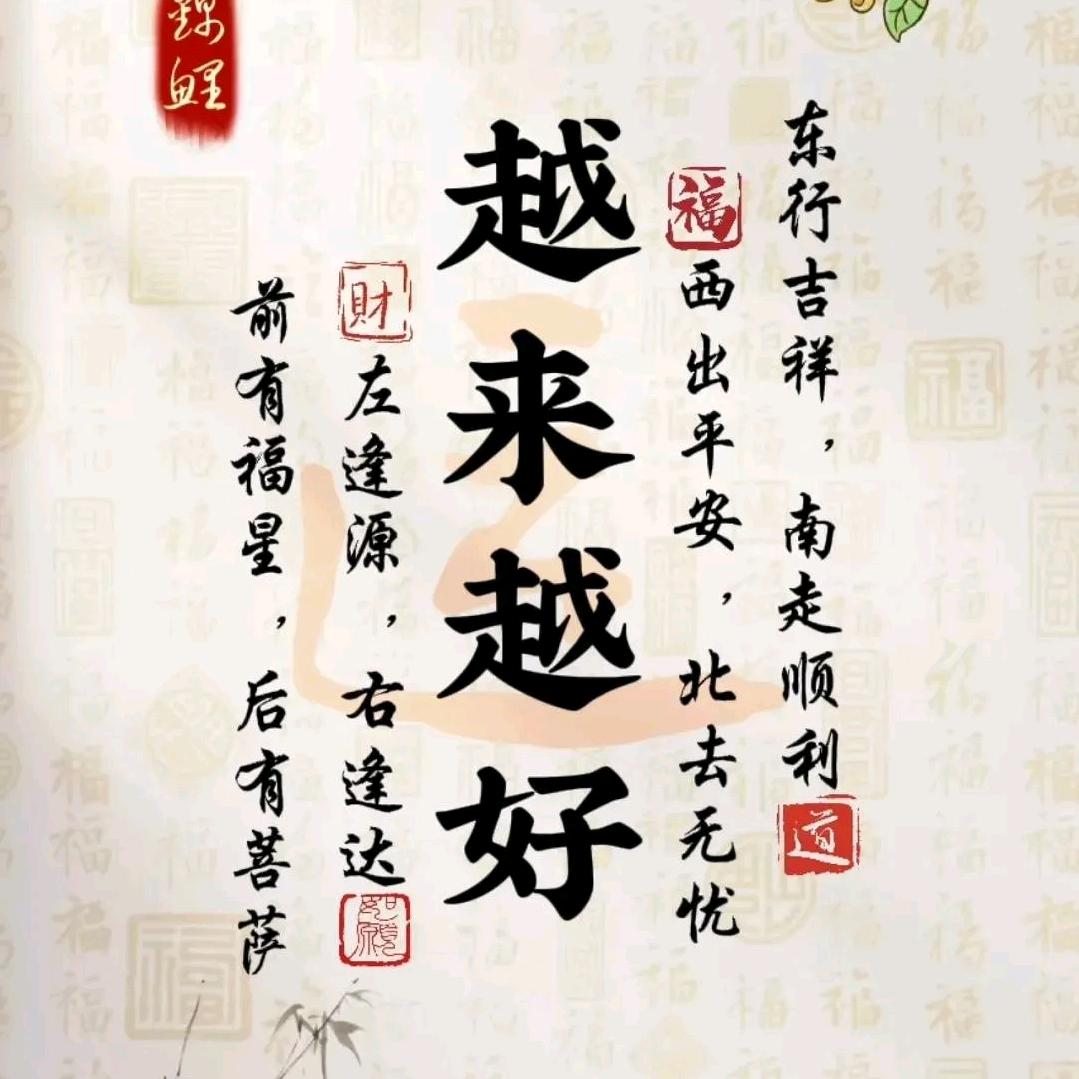 东行吉祥，南走顺利
道
福
西出平安，北去无忧
越来越好
財
左逢源，右逢达
如愿
前有福星，后有菩萨
錦鲤
福